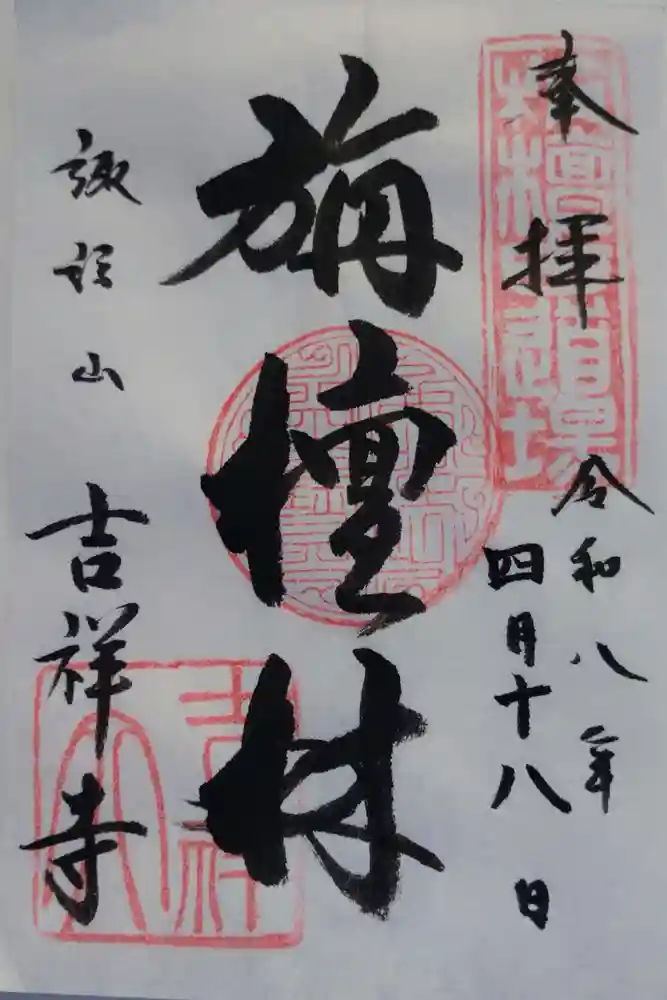 奉拝
令和八年
四月十八日
旃檀林
諏訪山 吉祥寺
旃檀林道場